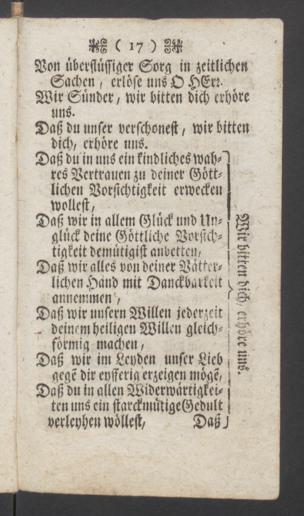 ( 17 )
Von überflüssiger Sorg in zeitlichen
Sachen, erlöse uns O HErr.
Wir Sünder, wir bitten dich erhöre
uns.
Daß du unser verschonest, wir bitten
dich, erhöre uns.
Daß du in uns ein kindliches wah-
res Vertrauen zu deiner Gött-
lichen Vorsichtigkeit erwecken
wollest,
Daß wir in allem Glück und Un-
glück deine Göttliche Vorsich-
tigkeit demütigist anbetten,
Daß wir alles von deiner Vätter-
lichen Hand mit Danckbarkeit
annemmen,
Daß wir unsern Willen jederzeit
deinem heiligen Willen gleich-
förmig machen,
Daß wir im Leyden unser Lieb
gegē dir eyfferig erzeigen mögē,
Daß du in allen Widerwärtigkei-
ten uns ein starckmütige Gedult
verleyhen wöllest, Daß
Wir bitten dich, erhöre uns.